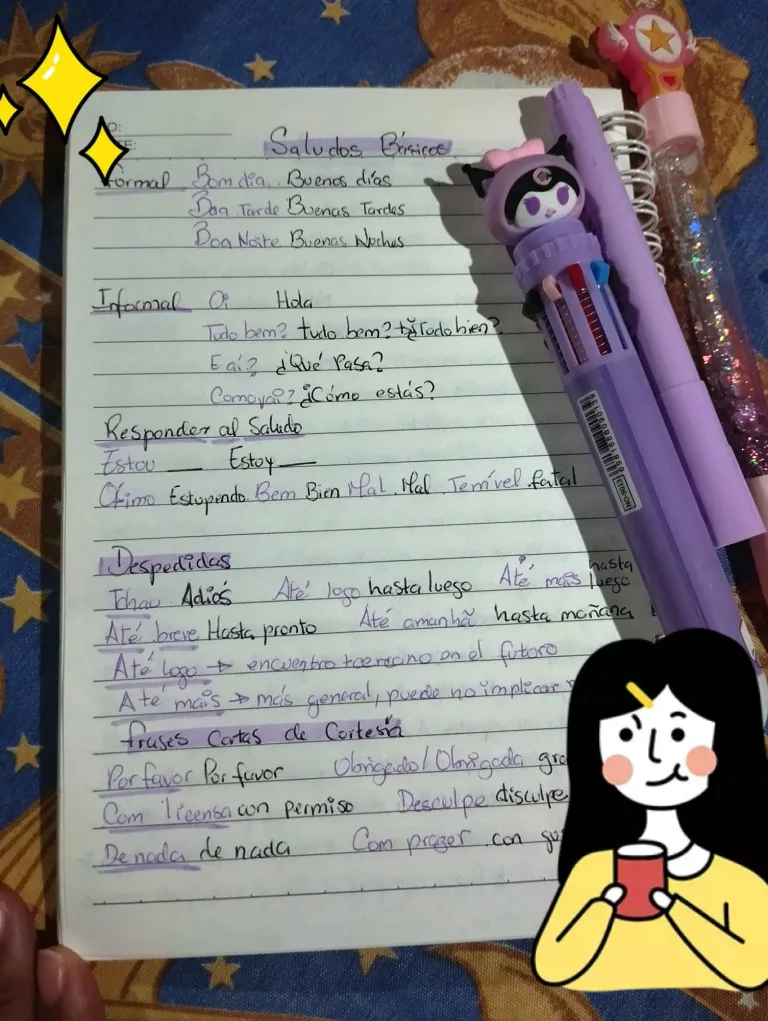 Saludos Básicos
Formal Bom dia Buenos días
Boa Tarde Buenas Tardes
Boa Noite Buenas Noches
Informal Oi Hola
Tudo bem? tudo bem? Todo bien?
E aí? ¿Qué Pasa?
Como vai? ¿Cómo estás?
Responder al Saludo
Estou ___ Estoy ___
Ótimo Estupendo Bem Bien Mal Mal Temível fatal
Despedidas
Tchau Adiós Até logo hasta luego Até mais hasta luego
Até breve Hasta pronto Até amanhã hasta mañana
Até logo → encuentro en el futoro
Até mais → más general, puede no implicar
frases Cortas de Cortesía
Por favor Por favor Obrigado/Obrigada
Com licensa con permiso Desculpe disculpe
De nada de nada Com prazer con